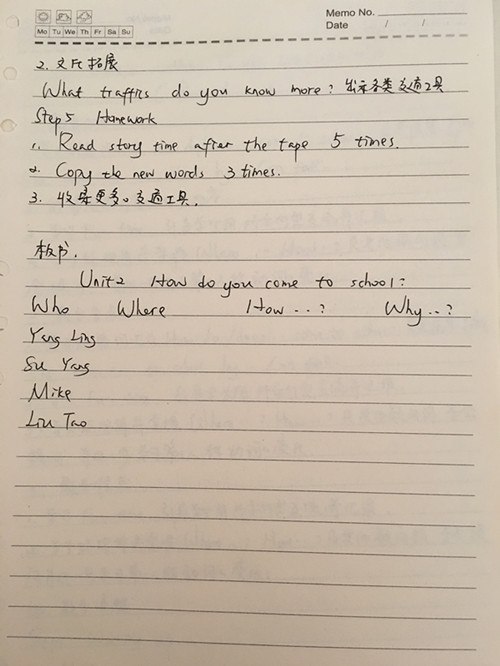 Memo No.
Mo Tu We Th Fr Sa Su
Date / /
2. 文化拓展
What traffics do you know more? 出示各类交通工具
Step 5 Homework
1. Read story time after the tape 5 times.
2. Copy the new words 3 times.
3. 收集更多交通工具.
板书.
Unit 2 How do you come to school?
Who Where How...? Why...?
Yang Ling
Su Yang
Mike
Liu Tao